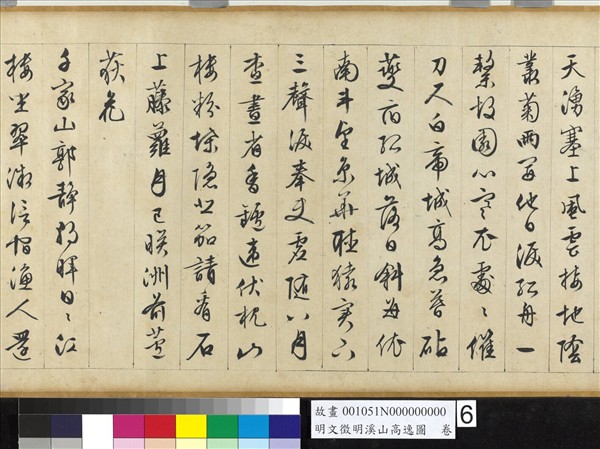 天湧塞上風雲接地陰
叢菊兩開他日淚孤舟一
繫故園心寒衣處〻催
刀尺白帝城高急暮砧
夔府孤城落日斜每依
南斗望京華聽猿實下
三聲淚奉使虛隨八月
查畫省香鑪違伏枕山
樓粉堞隱悲笳請看石
上藤蘿月已映洲前蘆
荻花
千家山郭靜朝暉日〻江
樓坐翠微信宿漁人還
故畫 001051N000000000
明文徵明溪山高逸圖 卷
6